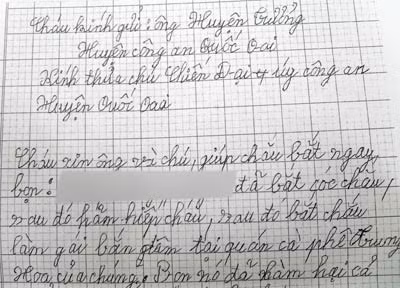 Cháu kính gửi: ông Huyện Trưởng
Huyện công an Quốc Oai
Kính thưa chú Chiến Đại úy công an
Huyện Quốc Oai
Cháu xin ông và chú, giúp cháu bắt ngay
bọn: đã bắt cóc cháu,
sau đó hãm hiếp cháu, sau đó bắt cháu
làm gái bán dâm tại quán cà phê Trung
Hoa của chúng. Bọn nó đã hãm hại cả